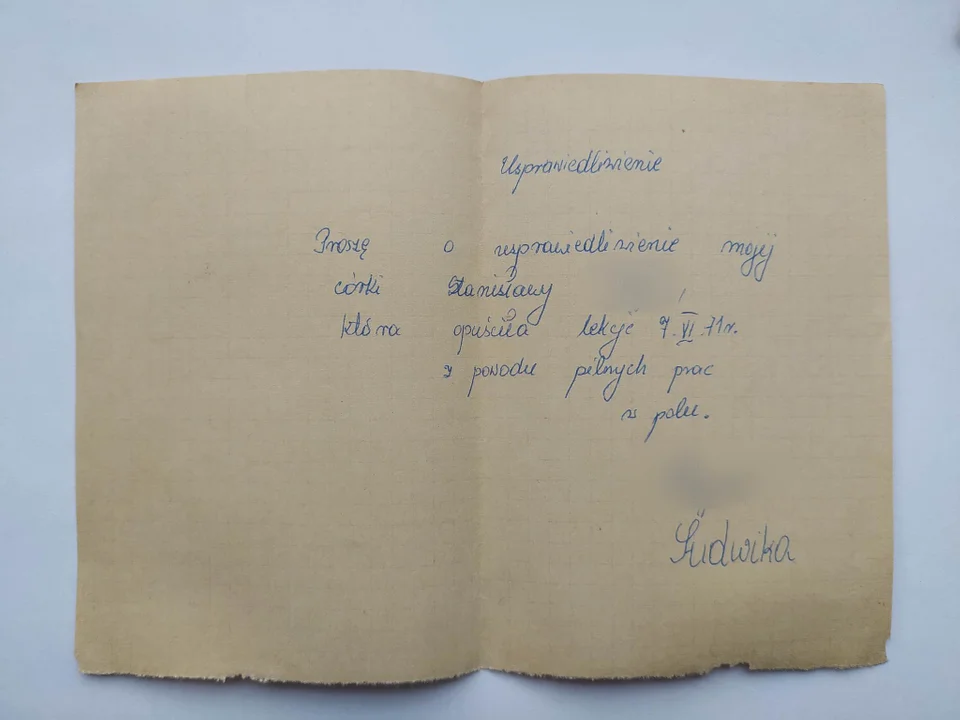 Usprawiedliwienie
Proszę o usprawiedliwienie mojej
córki Stanisławy
która opuściła lekcje 7.VI.71r.
z powodu pilnych prac
w polu.
Ludwika